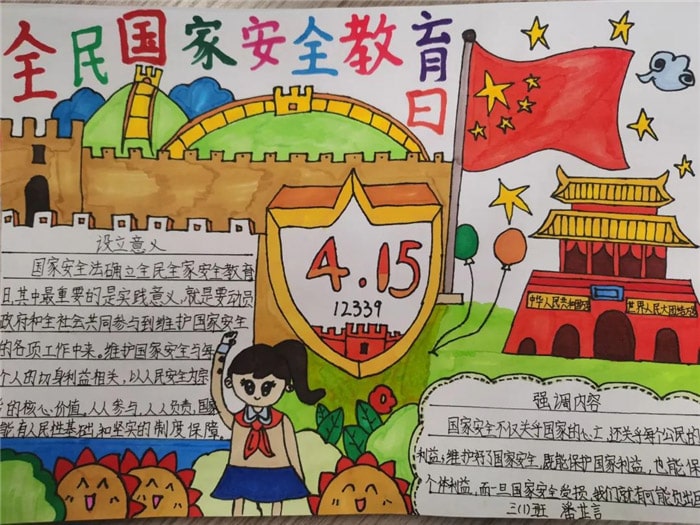 全民国家安全教育日
设立意义
国家安全法确立全民全家安全教育
日,其中最重要的是实践意义,就是要动员
政府和全社会共同参与到维护国家安全
的各项工作中来,维护国家安全与每
个人的切身利益相关,以人民安全为宗
的核心,价值,人人参与,人人负责,国家
能有人民性基础和坚实的制度保障。
4.15
12339
中华人民共和国
世界人民大团结
强调内容
国家安全不仅关乎国家的 亡,还关乎每个公民的
利益,维护好了国家安全,既能保护国家利益,也能保
个体利益,而一旦国家安全受损,我们就有可能
三(1)班 潘 言